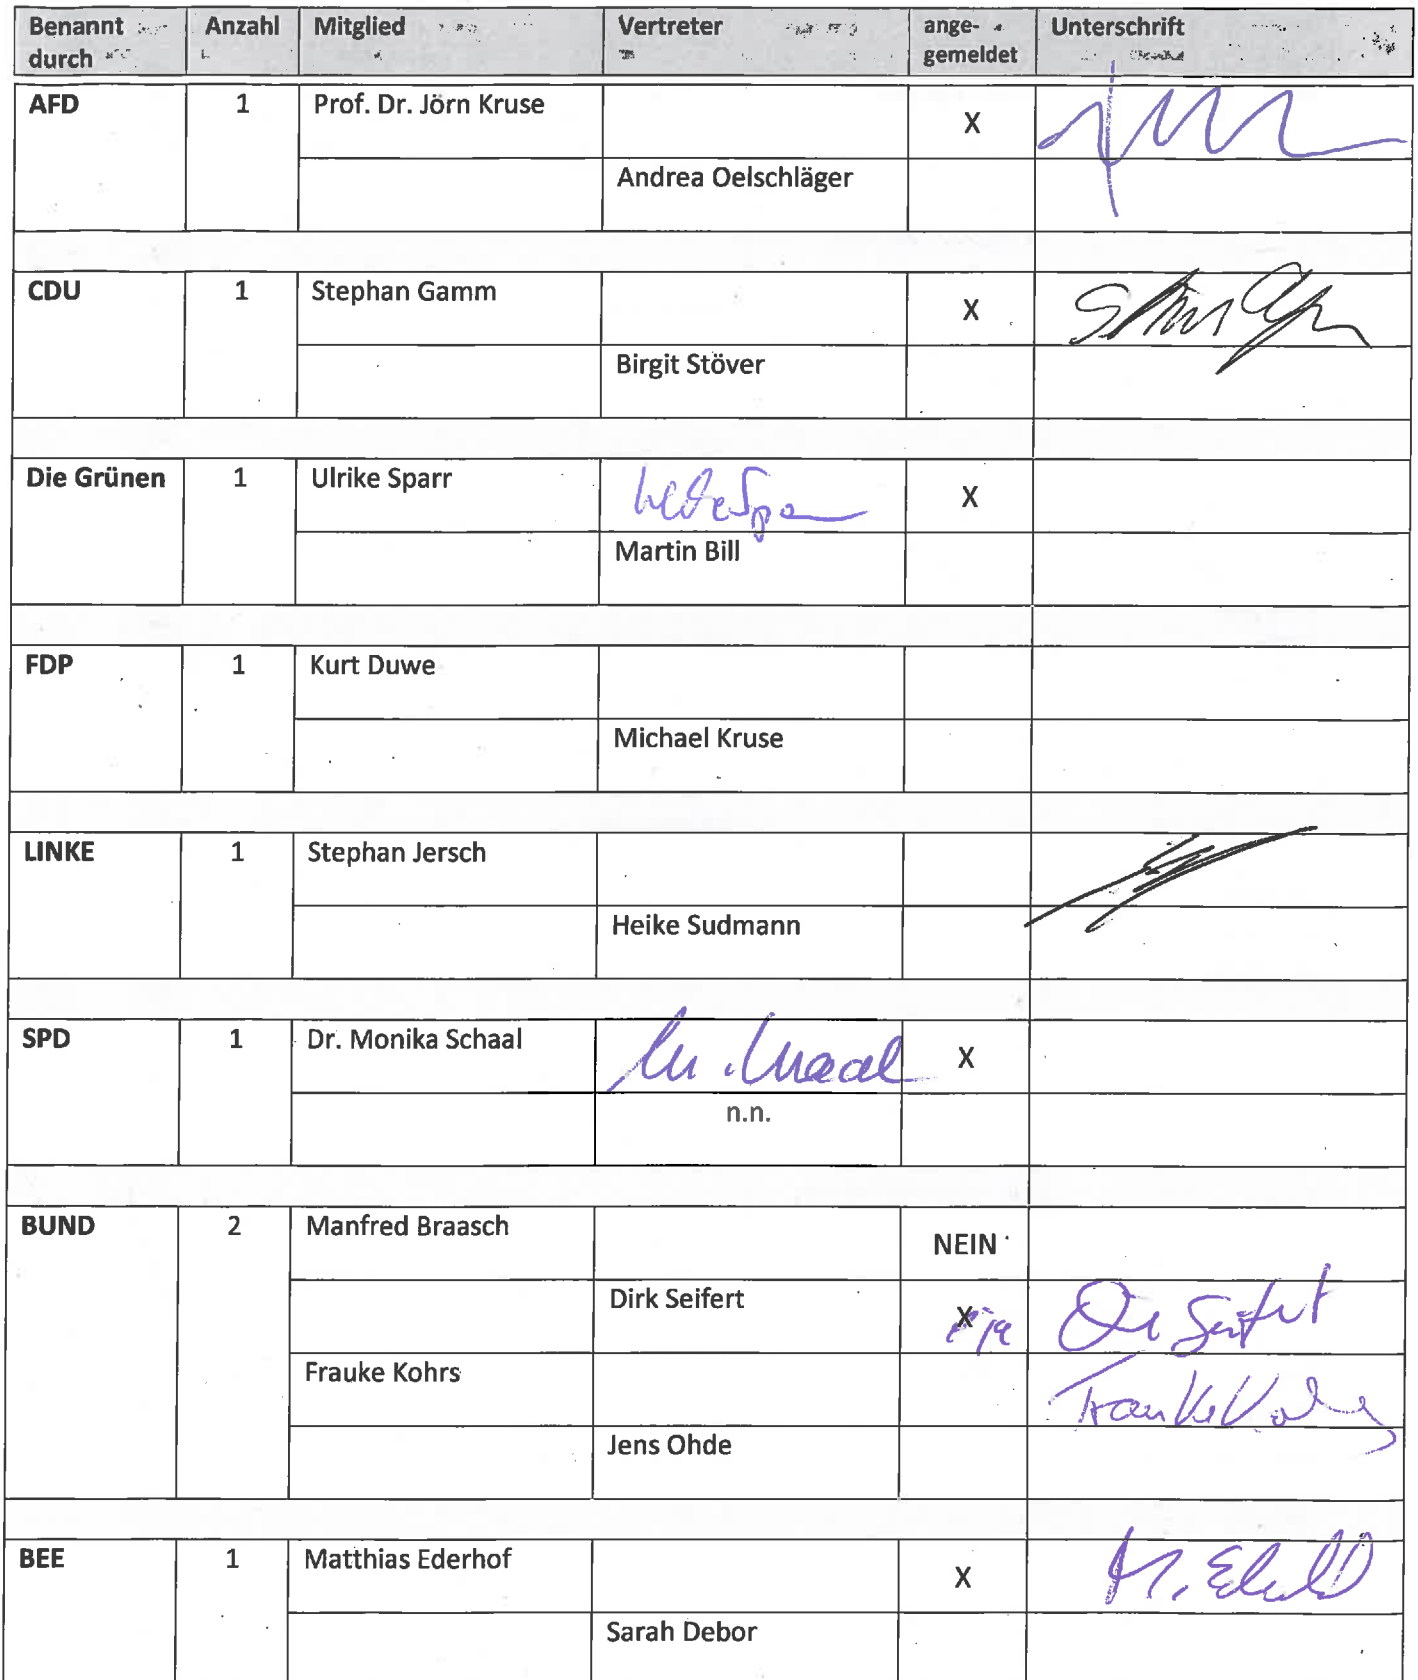 Benannt durch Anzahl Mitglied Vertreter ange- gemeldet Unterschrift
AFD 1 Prof. Dr. Jörn Kruse X
Andrea Oelschläger
CDU 1 Stephan Gamm X
Birgit Stöver
Die Grünen 1 Ulrike Sparr X
Martin Bill
FDP 1 Kurt Duwe
Michael Kruse
LINKE 1 Stephan Jersch
Heike Sudmann
SPD 1 Dr. Monika Schaal X
n.n.
BUND 2 Manfred Braasch NEIN
Dirk Seifert X ja
Frauke Kohrs
Jens Ohde
BEE 1 Matthias Ederhof X
Sarah Debor